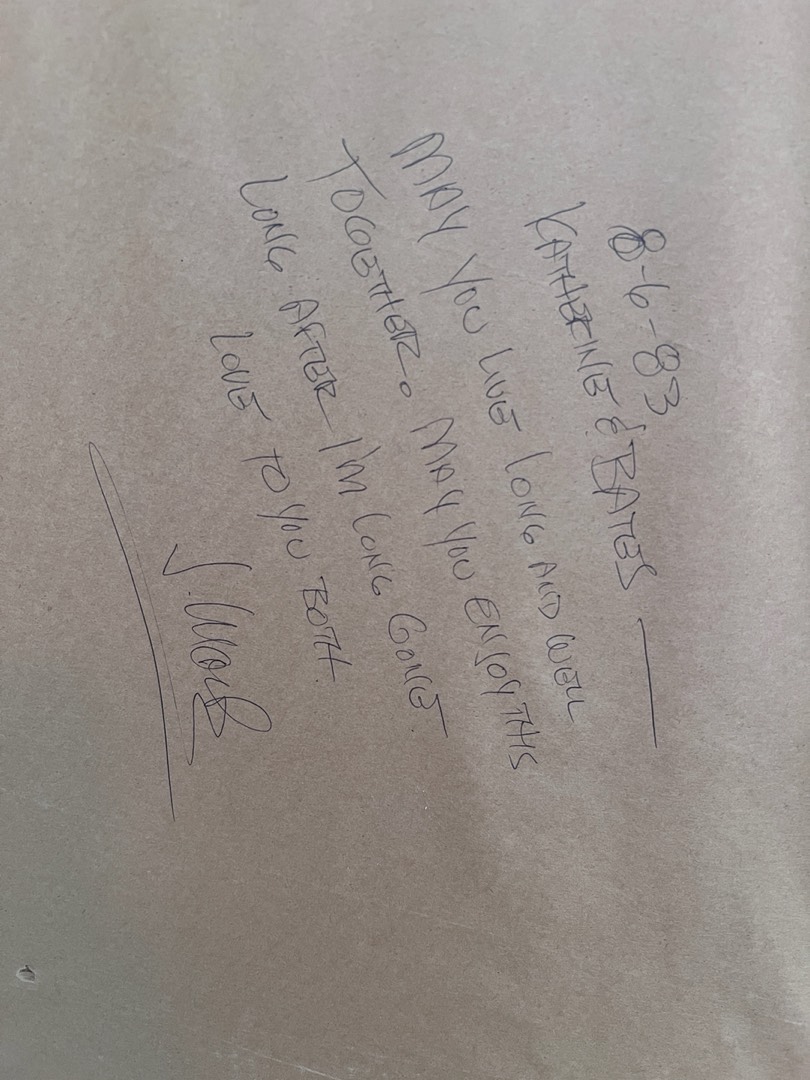 8-6-83
KATHERINE & BATES —
MAY YOU LIVE LONG AND WELL
TOGETHER. MAY YOU ENJOY THIS
LONG AFTER I'M LONG GONE.
LOVE TO YOU BOTH.
J.